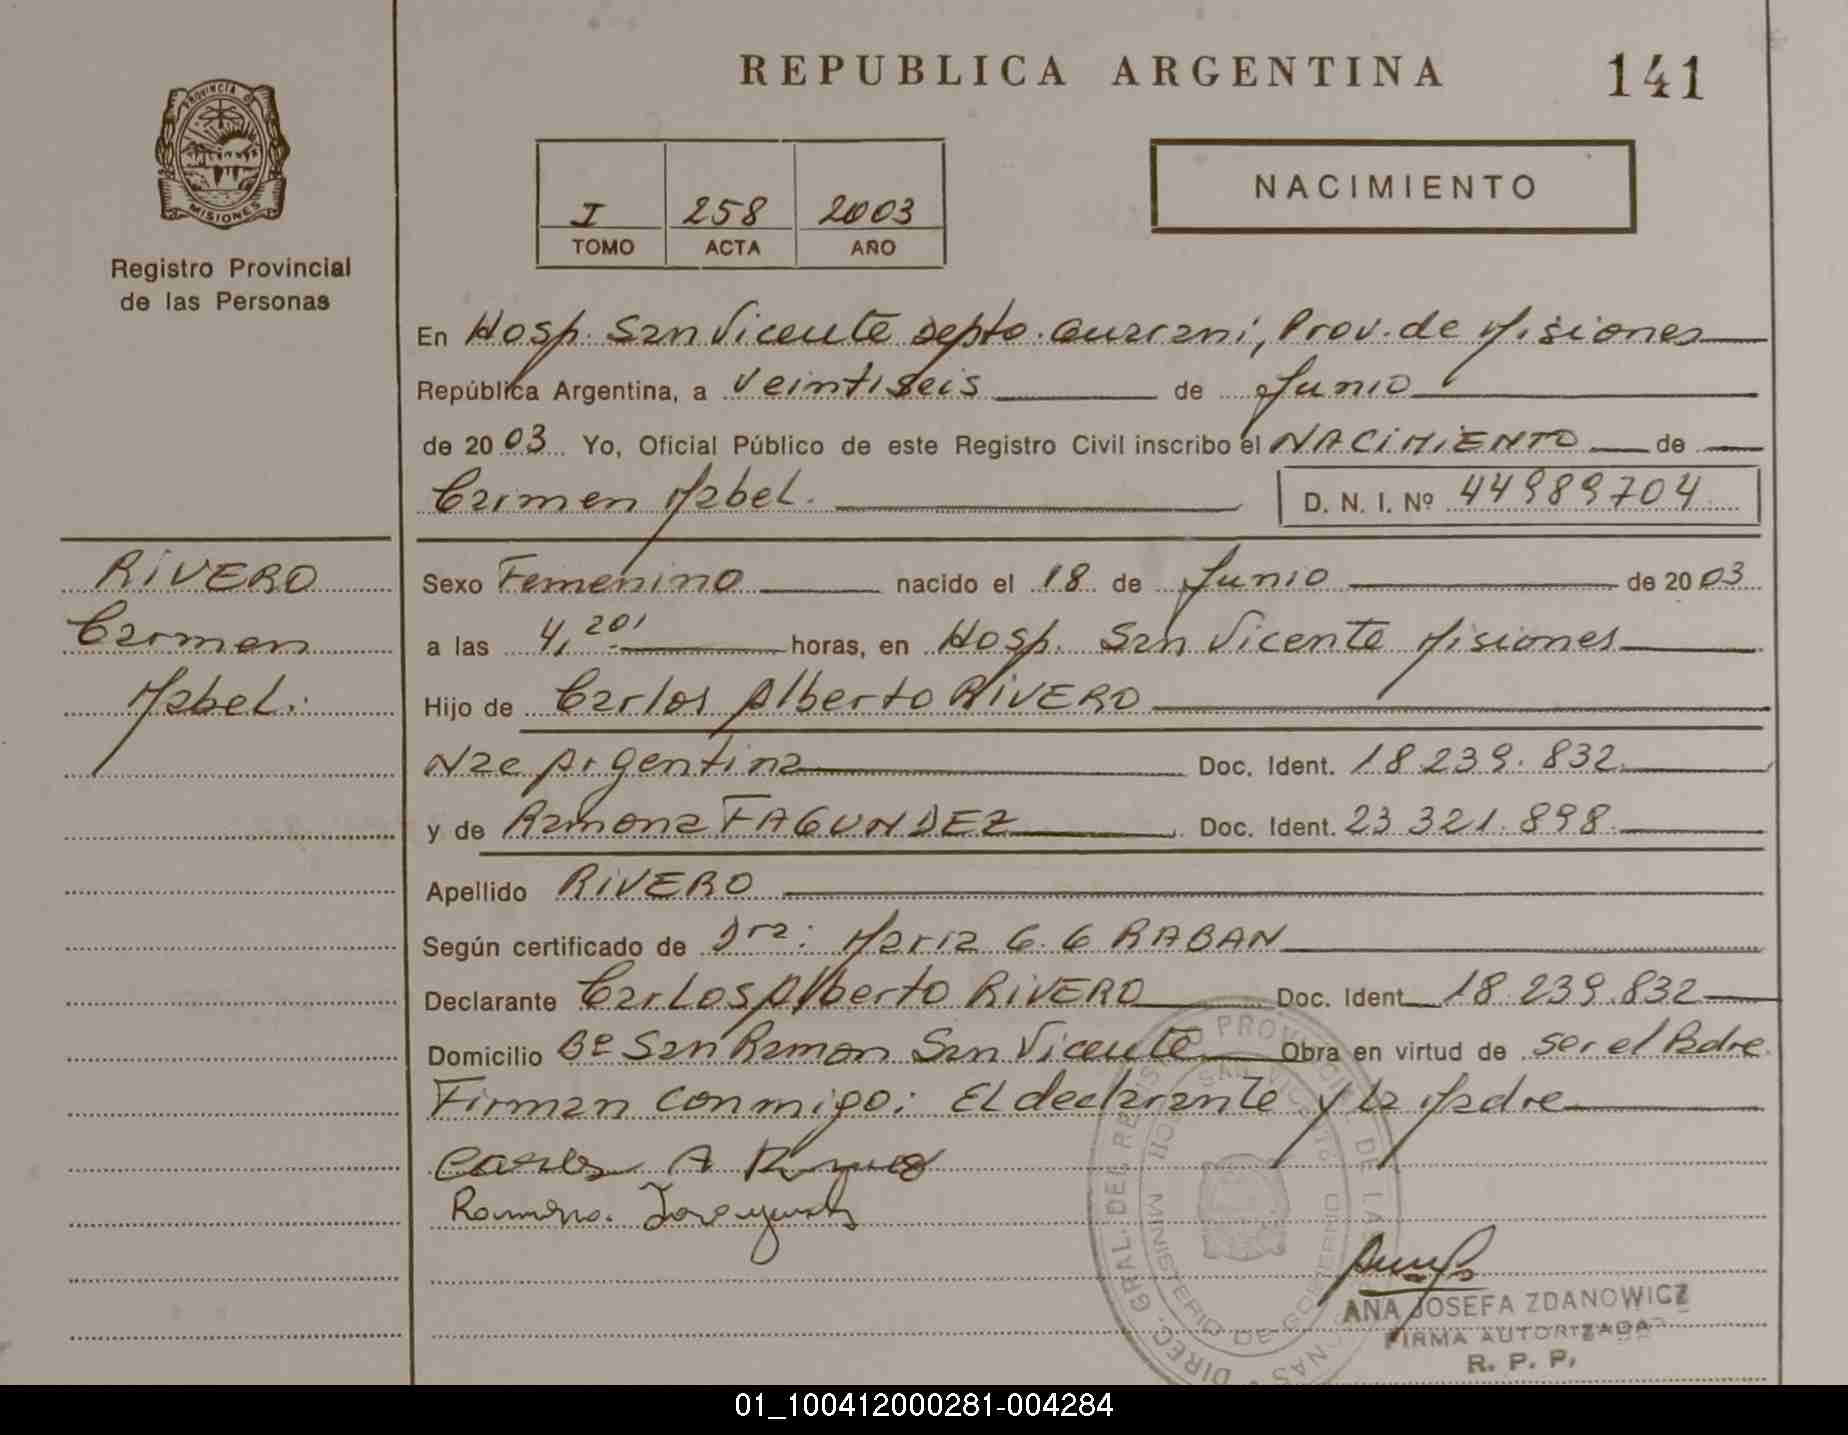 REPUBLICA ARGENTINA
141
PROVINCIA DE
MISIONES
Registro Provincial
de las Personas
I 258 2003
TOMO ACTA AÑO
NACIMIENTO
En Hosp. San Vicente Depto. Guarani, Prov. de Misiones
República Argentina, a veintiseis de Junio
de 2003 Yo, Oficial Público de este Registro Civil inscribo el NACIMIENTO de
Carmen Mabel.
D. N. I. Nº 44989704
RIVERO
Carmen
Mabel.
Sexo Femenino nacido el 18 de Junio de 2003
a las 4,20' horas, en Hosp. San Vicente Misiones
Hijo de Carlos Alberto RIVERO
Nac Argentina Doc. Ident. 18.239.832
y de Ramona FAGUNDEZ Doc. Ident. 23.321.898
Apellido RIVERO
Según certificado de Dra: Maria G. G RABAN
Declarante Carlos Alberto RIVERO Doc. Ident. 18.239.832
Domicilio Bº San Ramon San Vicente Obra en virtud de ser el Padre
Firman conmigo: El declarante y la Madre
Carlos A
ANA JOSEFA ZDANOWICZ
FIRMA AUTORIZADA
R. P. P.
MINISTERIO DE GOBIERNO
01_100412000281-004284